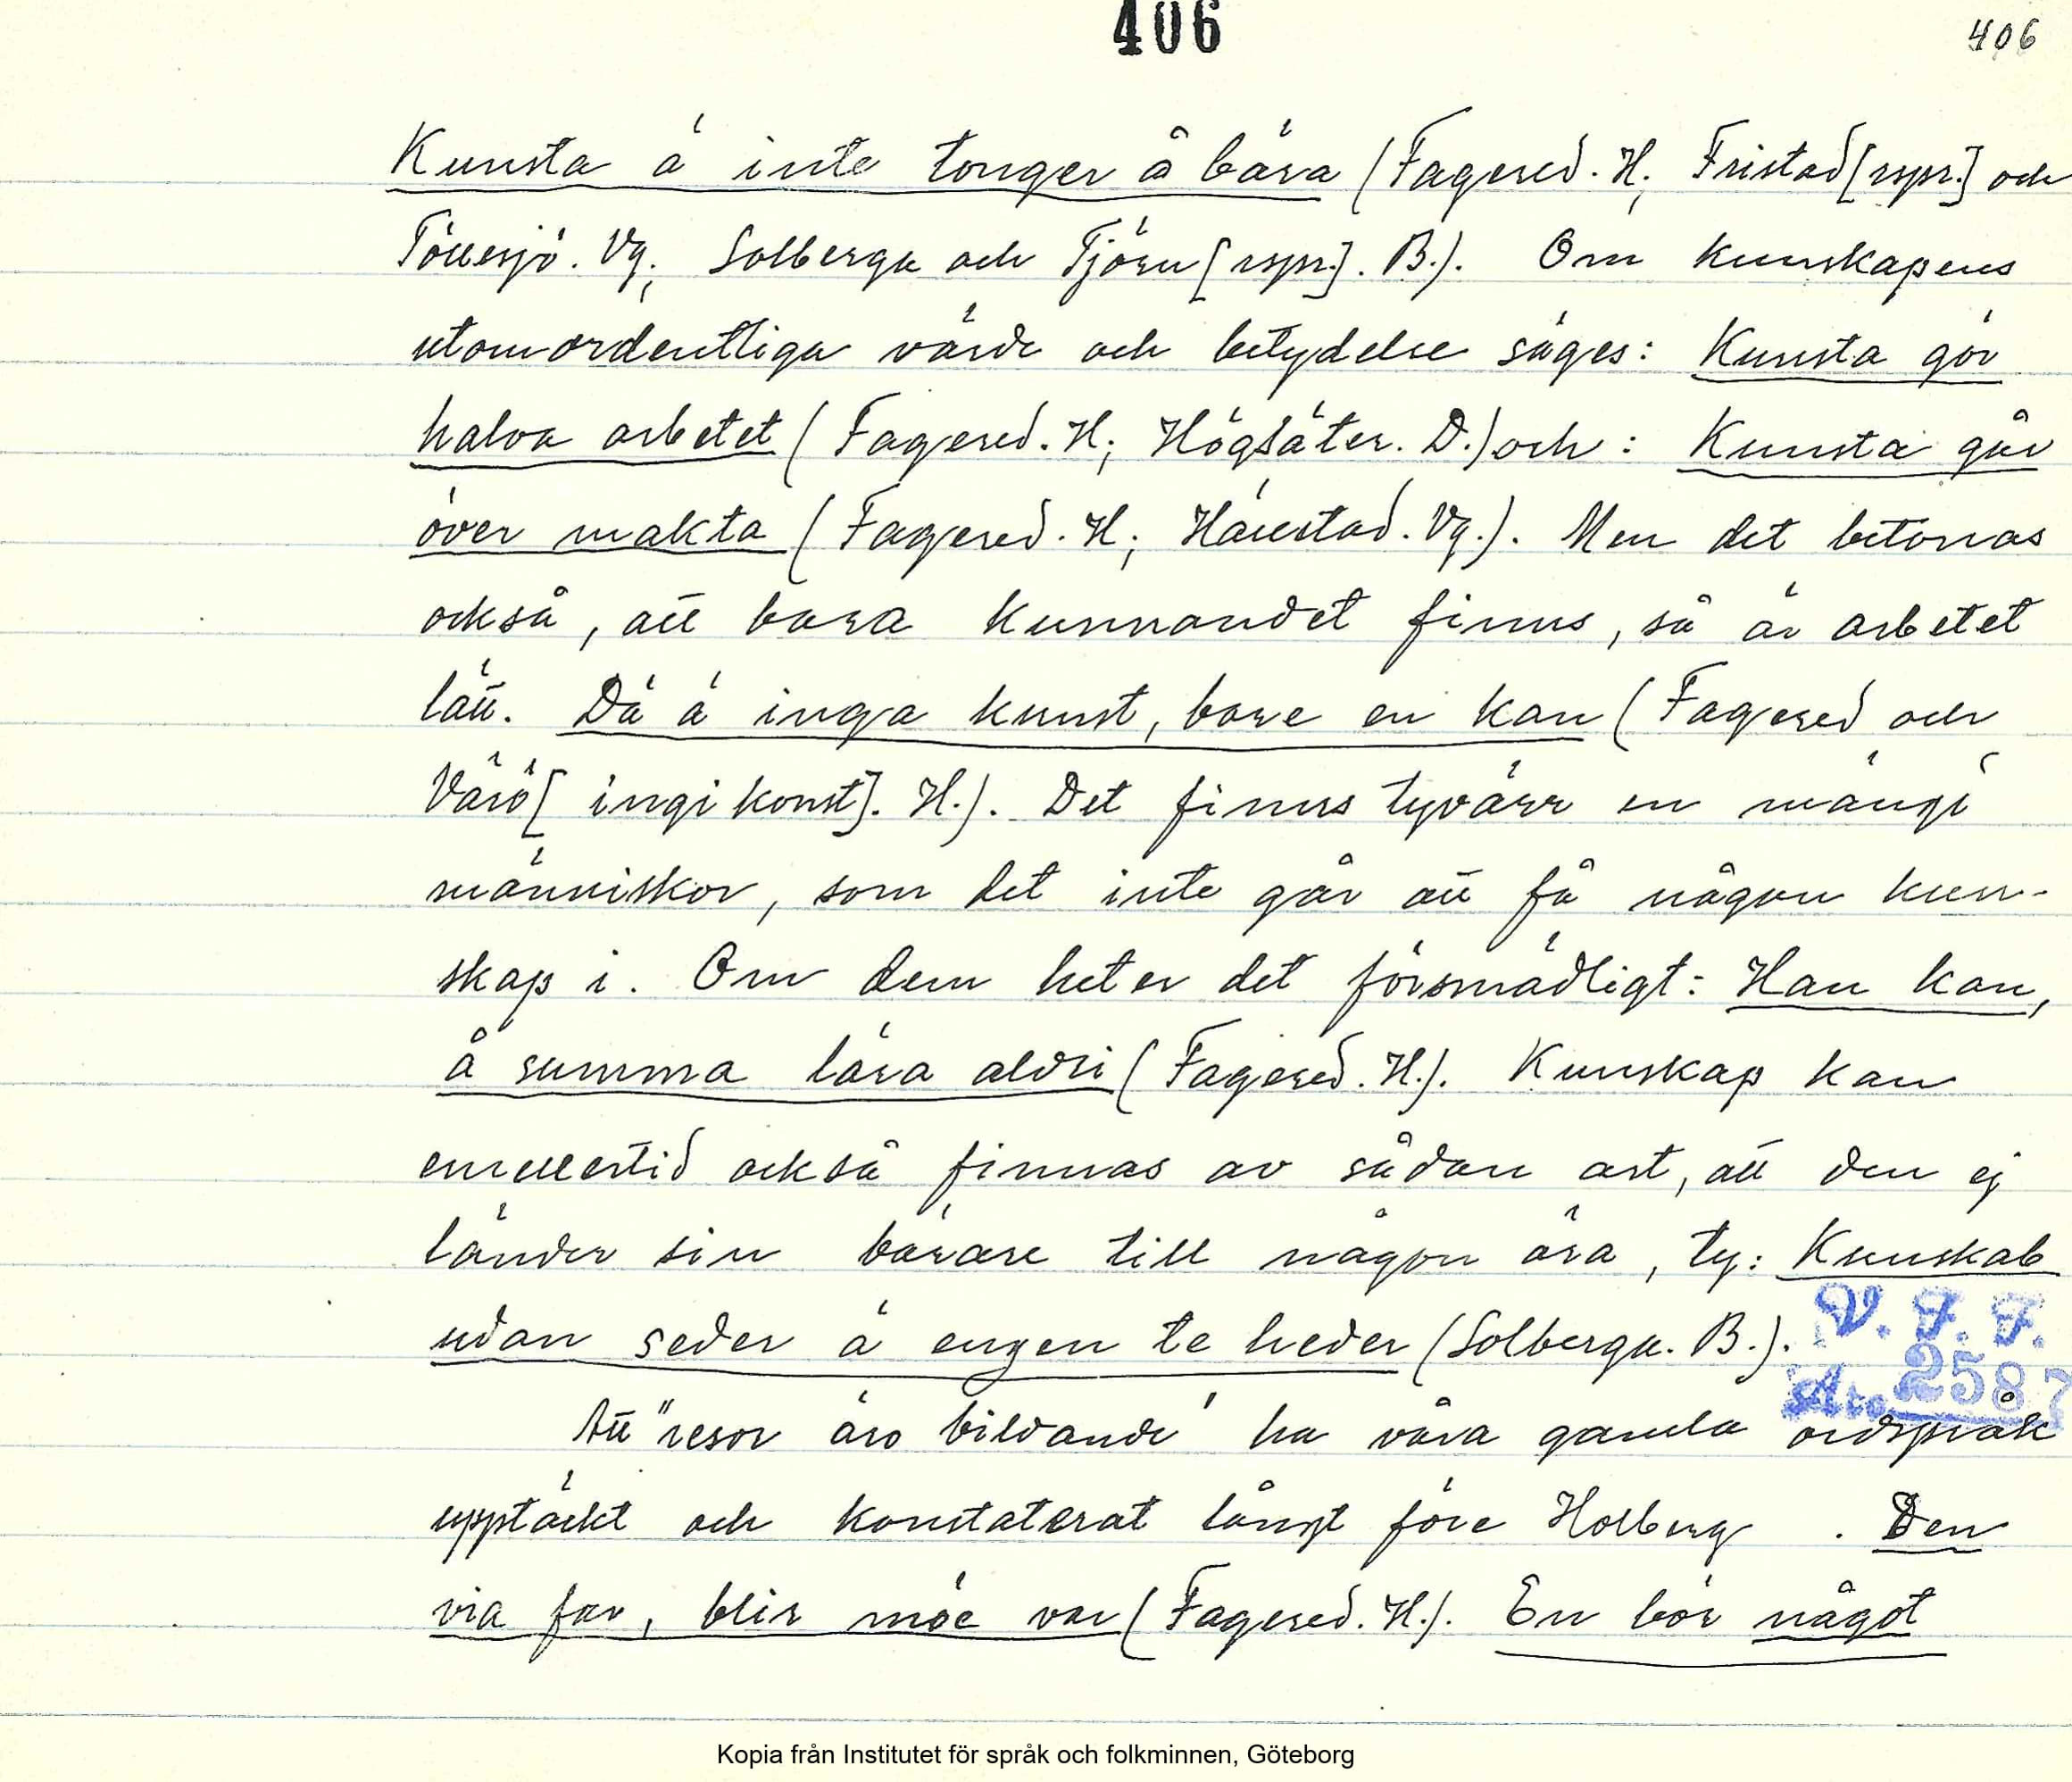 406
406
Kunsta ä inte tonger å bära (Fagered. H; Fristad [rspr.] och
Töllesjö. Vg; Solberga och Tjörn [rspr.]. B.). Om kunskapens
utomordentliga värde och betydelse säges: Kunsta gör
halva arbetet (Fagered. H; Högsäter. D.) och: Kunsta går
över makta (Fagered. H; Hällstad. Vg.). Men det betonas
också, att bara kunnandet finns, så är arbetet
lätt. Dä ä inga kunst, bare en kan (Fagered och
Värö [ingi konst]. H.). Det finns tyvärr en mängd
människor, som det inte går att få någon kun-
skap i. Om dem heter det försmädligt: Han kan,
å summa lära aldri (Fagered. H.). Kunskap kan
emellertid också finnas av sådan art, att den ej
länder sin bärare till någon ära, ty: Kunskab
udan seder ä engen te heder (Solberga. B.).
V. F. F.
Acc. 2587
Att "resor äro bildande" ha våra gamla ordspråk
upptäckt och konstaterat långt före Holberg . Den
via far, blir möe var (Fagered. H.). En bör något
Kopia från Institutet för språk och folkminnen, Göteborg